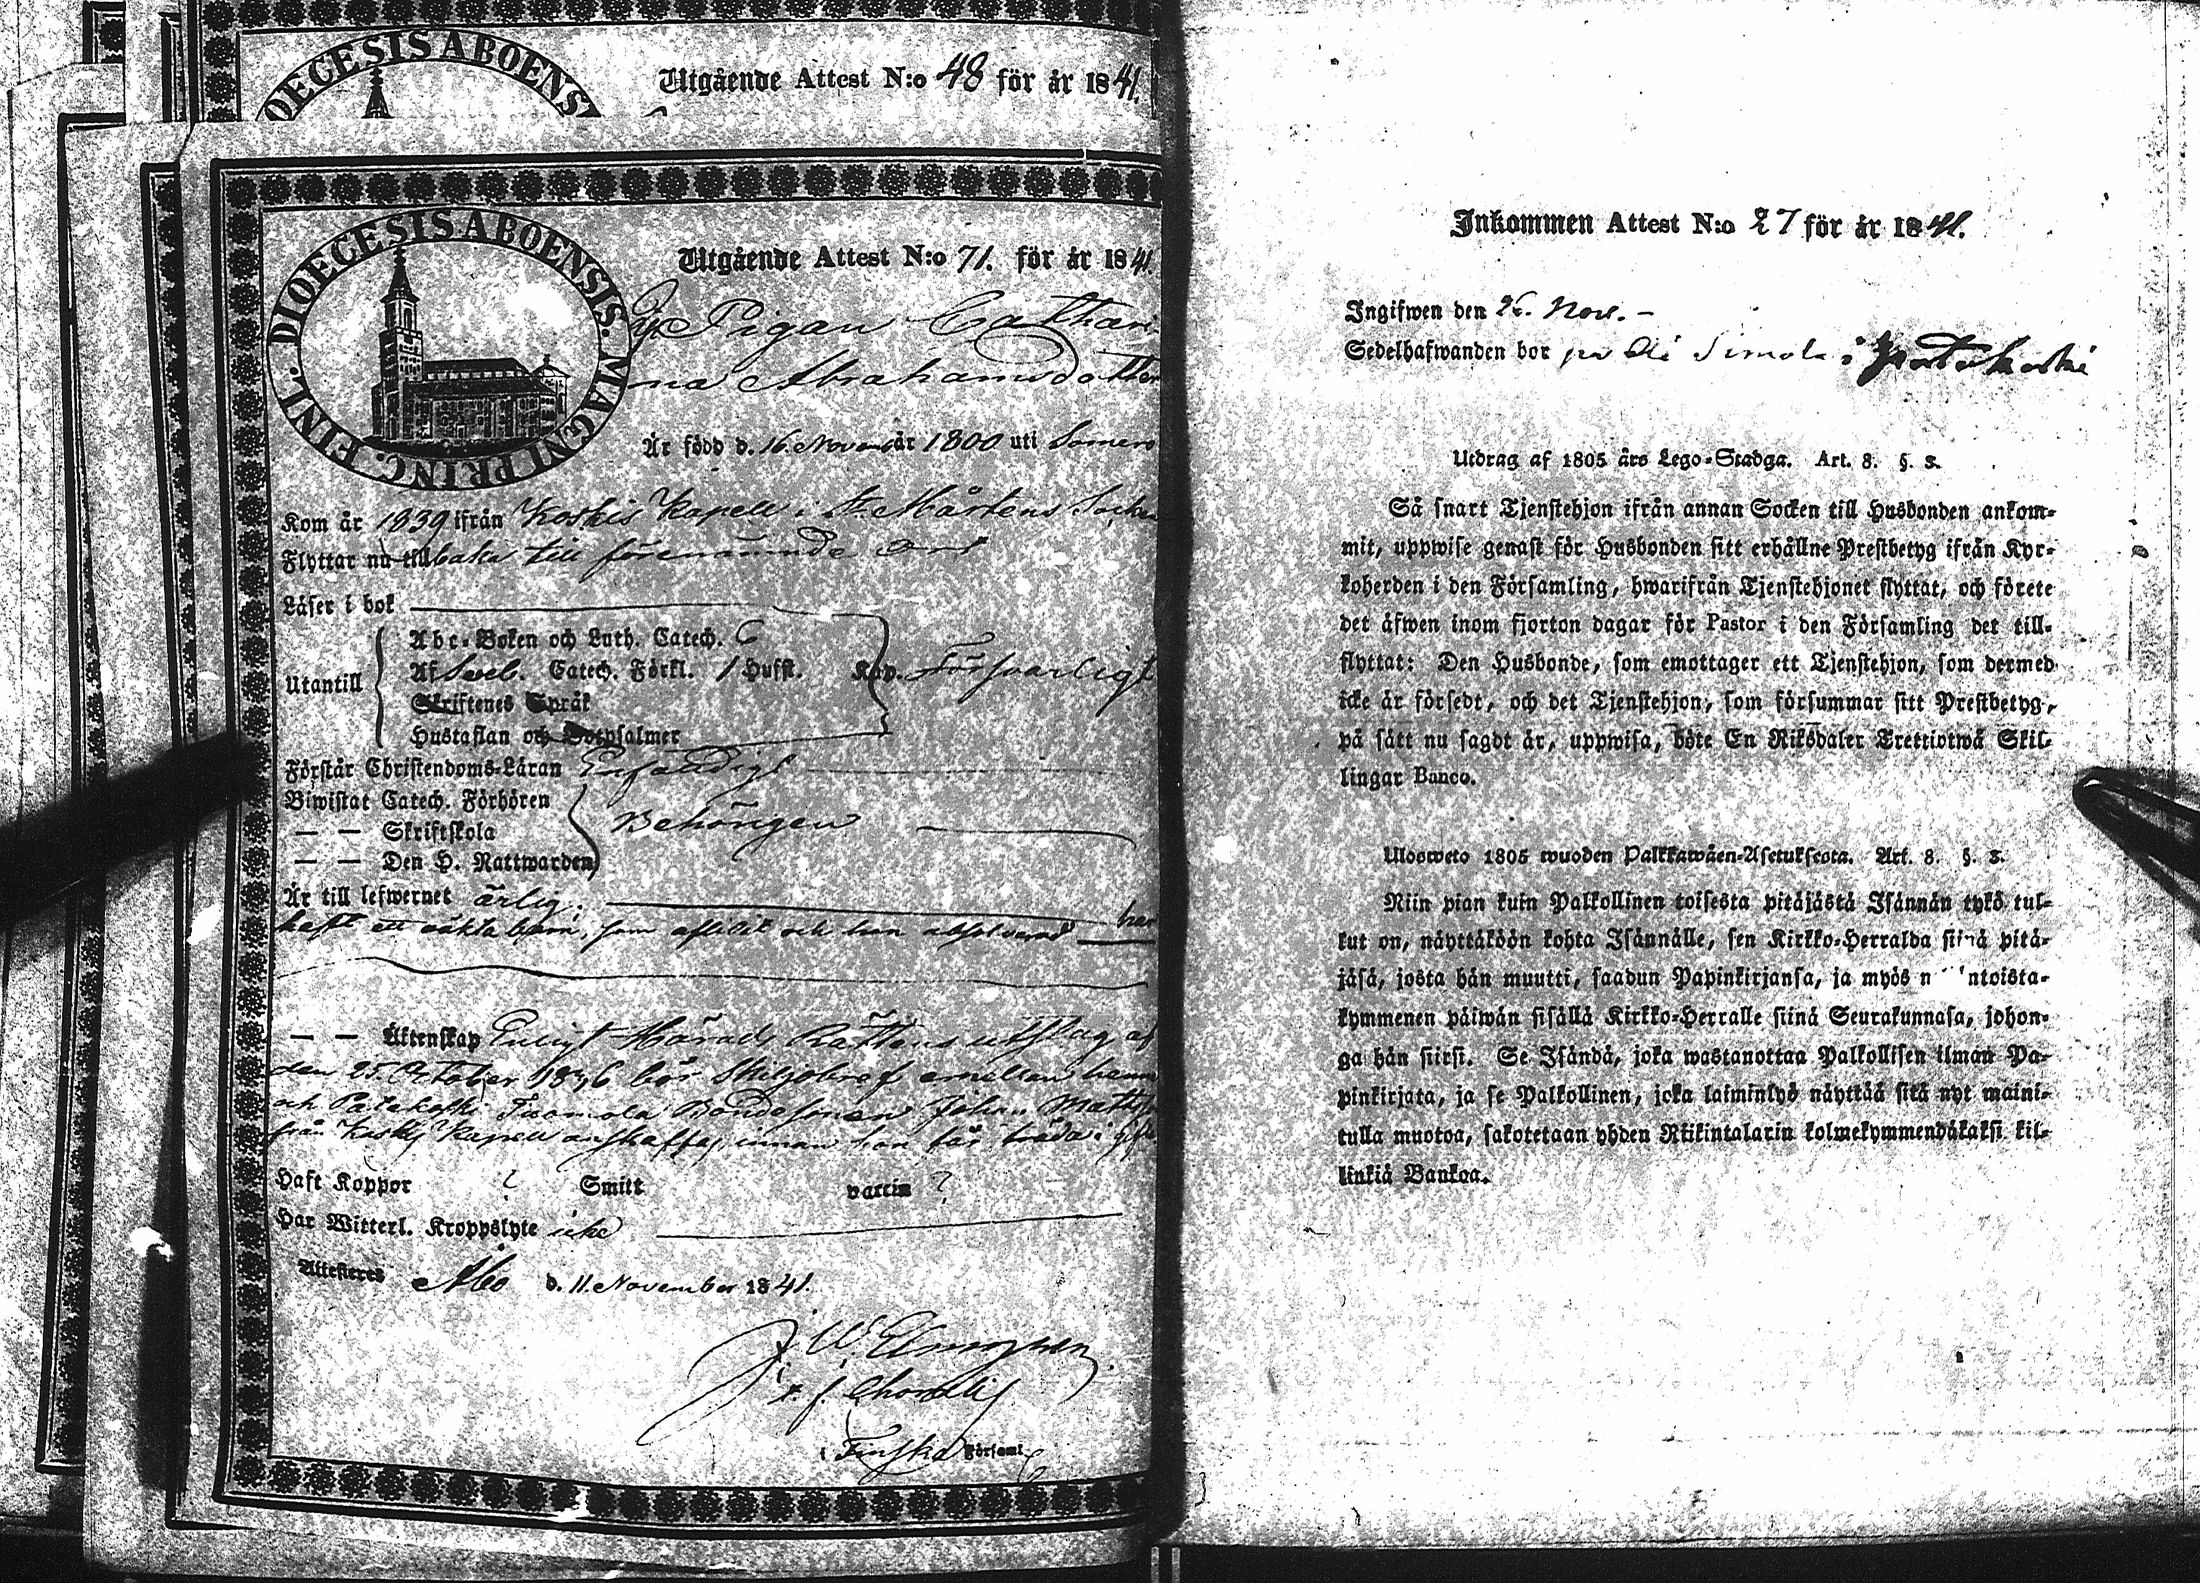 DIOECESIS ABOENSIS
Utgående Attest N:o 48 för år 1841.
DIOECESIS ABOENSIS. MAGNI PRINC. FINL.
Utgående Attest N:o 71. för år 1841.
Pigan Cathari-
na Abrahamsdotter
Är född d. 16. Novemb år 1800 uti Somero
Kom år 1839 ifrån Koskis Kapell i St. Mårtens Socken
Flyttar nu tillbaka till förenämnde Ort
Läser i bok
Utantill
Abc-Boken och Luth. Catech. 6
Af Sveb. Catech. Förkl. 1 Hufst. Kap. Försvarligt
Skriftenes Språk
Hustaflan och Botpsalmer
Förstår Christendoms-Läran Enfaldigt
Biwistat Catech. Förhören
— — Skriftskola Behörigen
— — Den H. Nattwarden
Är till lefwernet ärlig; har
haft ett oäkta barn, som aflidit och hon absolverad
— — Äktenskap Enligt Härads Rättens utslag af
den 25 October 1836 bör Skiljobref emellan henne
och Patakoski Tuomola Bondesonen Johan Matts
från Koskis Kapell anskaffas, innan hon får träda i gifte
Haft Koppor ? Smitt vaccin ?
Har Witterl. Kroppslyte icke
Attesteres Åbo d. 11. November 1841.
i Finska Församl.
Inkommen Attest N:o 27 för år 1841.
Ingifwen den 26. Nov. -
Sedelhafwanden bor på Simola i Patakoski
Utdrag af 1805 års Lego-Stadga. Art. 8. §. 3.
Så snart Tjenstehjon ifrån annan Socken till Husbonden ankom-
mit, uppwise genast för Husbonden sitt erhållne Prestbetyg ifrån Kyr-
koherden i den Församling, hwarifrån Tjenstehjonet flyttat, och förete
det äfwen inom fjorton dagar för Pastor i den Församling det till-
flyttat: Den Husbonde, som emottager ett Tjenstehjon, som dermed
icke är försedt, och det Tjenstehjon, som försummar sitt Prestbetyg,
på sätt nu sagdt är, uppwisa, böte En Riksdaler Trettiotwå Skil-
lingar Banco.
Ulosweto 1805 wuoden Palkkawäen-Asetuksesta. Art. 8. §. 3.
Niin pian kuin Palkollinen toisesta pitäjästä Isännän tykö tul-
kut on, näyttäköön kohta Isännälle, sen Kirkko-Herralda siinä pitä-
jäsä, josta hän muutti, saadun Papinkirjansa, ja myös n ntoista-
kymmenen päiwän sisällä Kirkko-Herralle siinä Seurakunnasa, johon-
ga hän siirsi. Se Isändä, joka wastanottaa Palkollisen ilman Pa-
pinkirjata, ja se Palkollinen, joka laiminlyö näyttää sitä nyt maini-
tulla muotoa, sakotetaan yhden Riikintalarin kolmekymmendäkaksi kil-
linkiä Bankoa.